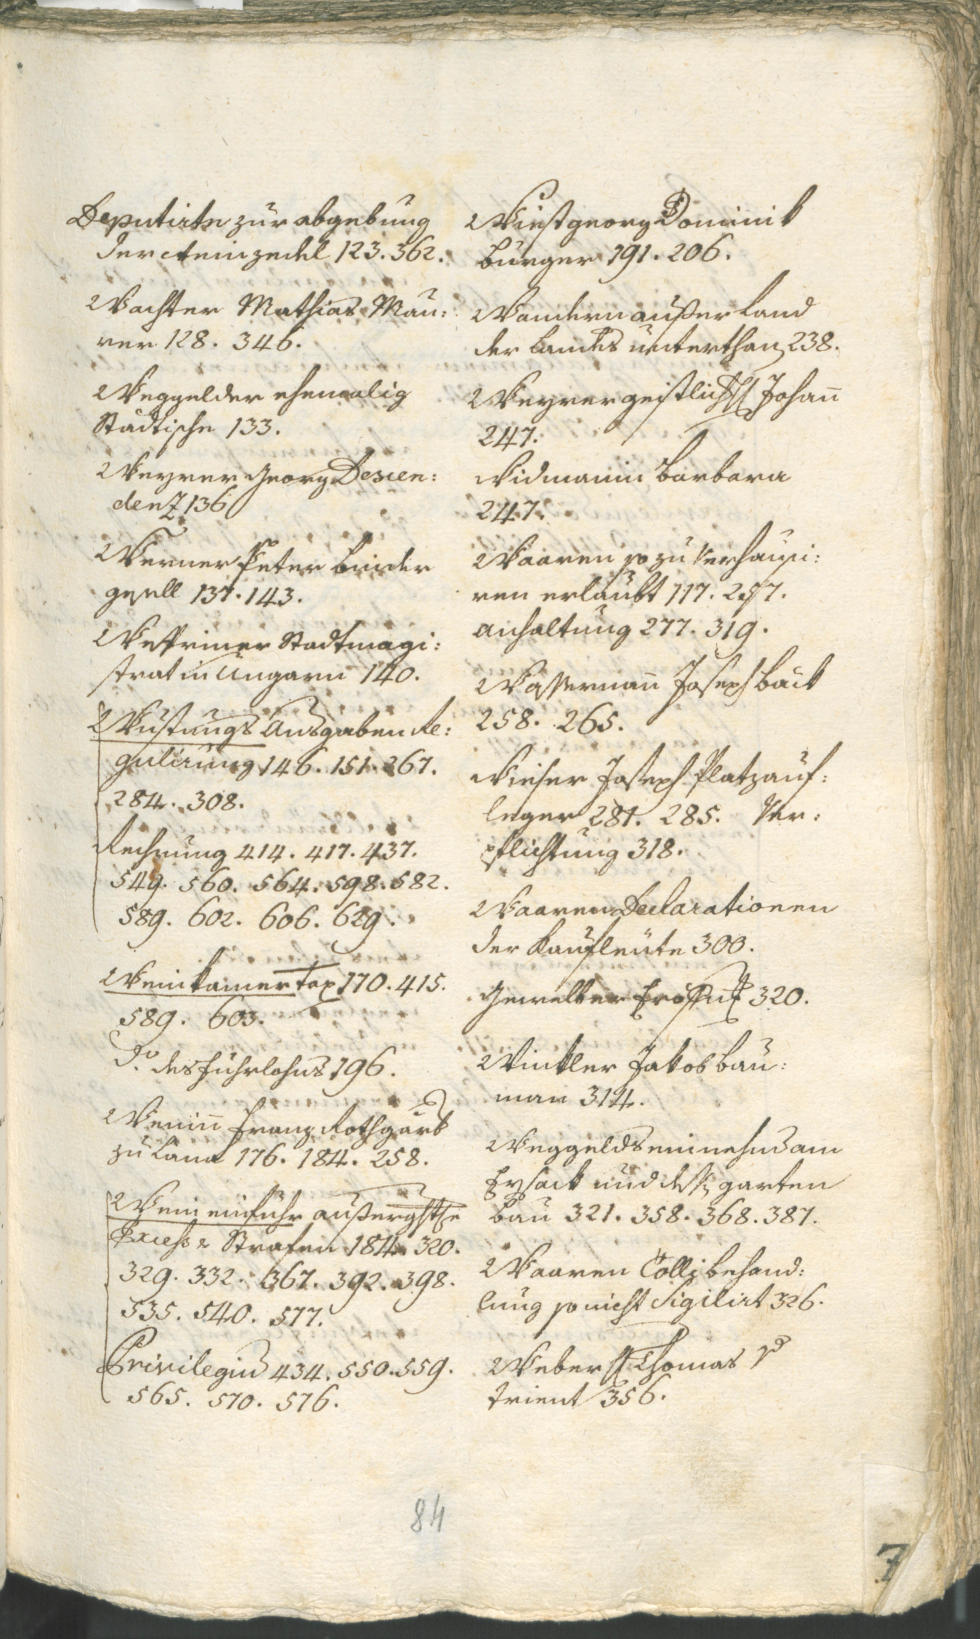 Deputirte zur abgebung
der Weinzedel 123. 362.
Wachter Mathias Mau:
rer 128. 346.
Weggelder ehemalig
Städtische 133.
Weyrer Georg Descen:
denz 136
Werner Peter binder
gesell 137. 143.
Stadtmagi:
strat in Ungarn 140.
Wüstungs Ausgaben Re:
gulirung 146. 151. 267.
284. 308.
Rechnung 414. 417. 437.
549. 560. 564. 598. 582.
589. 602. 606. 629.
Weinkamer Tax 170. 415.
589. 603.
Do. des fuhrlohns 196.
Franz Rothgärb
zu Lana 176. 184. 258.
Wein einfuhr
Strafen 184. 320.
329. 332. 367. 392. 398.
535. 540. 577.
Privilegium 434. 550. 559.
565. 570. 576.
Wiestgeorg Dominik
burger 191. 206.
Wandern ausser Land
der Landes unterthan 238.
Weyrer geistlich H Johann
247.
Widmanin Barbara
247.
Waaren so zu verhausi:
ren erlaubt 117. 257.
anhaltung 277. 319.
Wasserman Joseph bäck
258. 265.
Wieser Joseph Platzauf:
leger 281. 285. Ver:
pflichtung 318.
Waaren Declarationen
der Kaufleute 300.
Gewelber 320.
Winkler Jakob bau:
man 314.
Weggelds einnehmer am
Eysack und garten
bau 321. 358. 368. 387.
Waaren Colli behand:
lung so nicht Sigilirt 326.
Weber H Thomas
Trient 356.
84
7